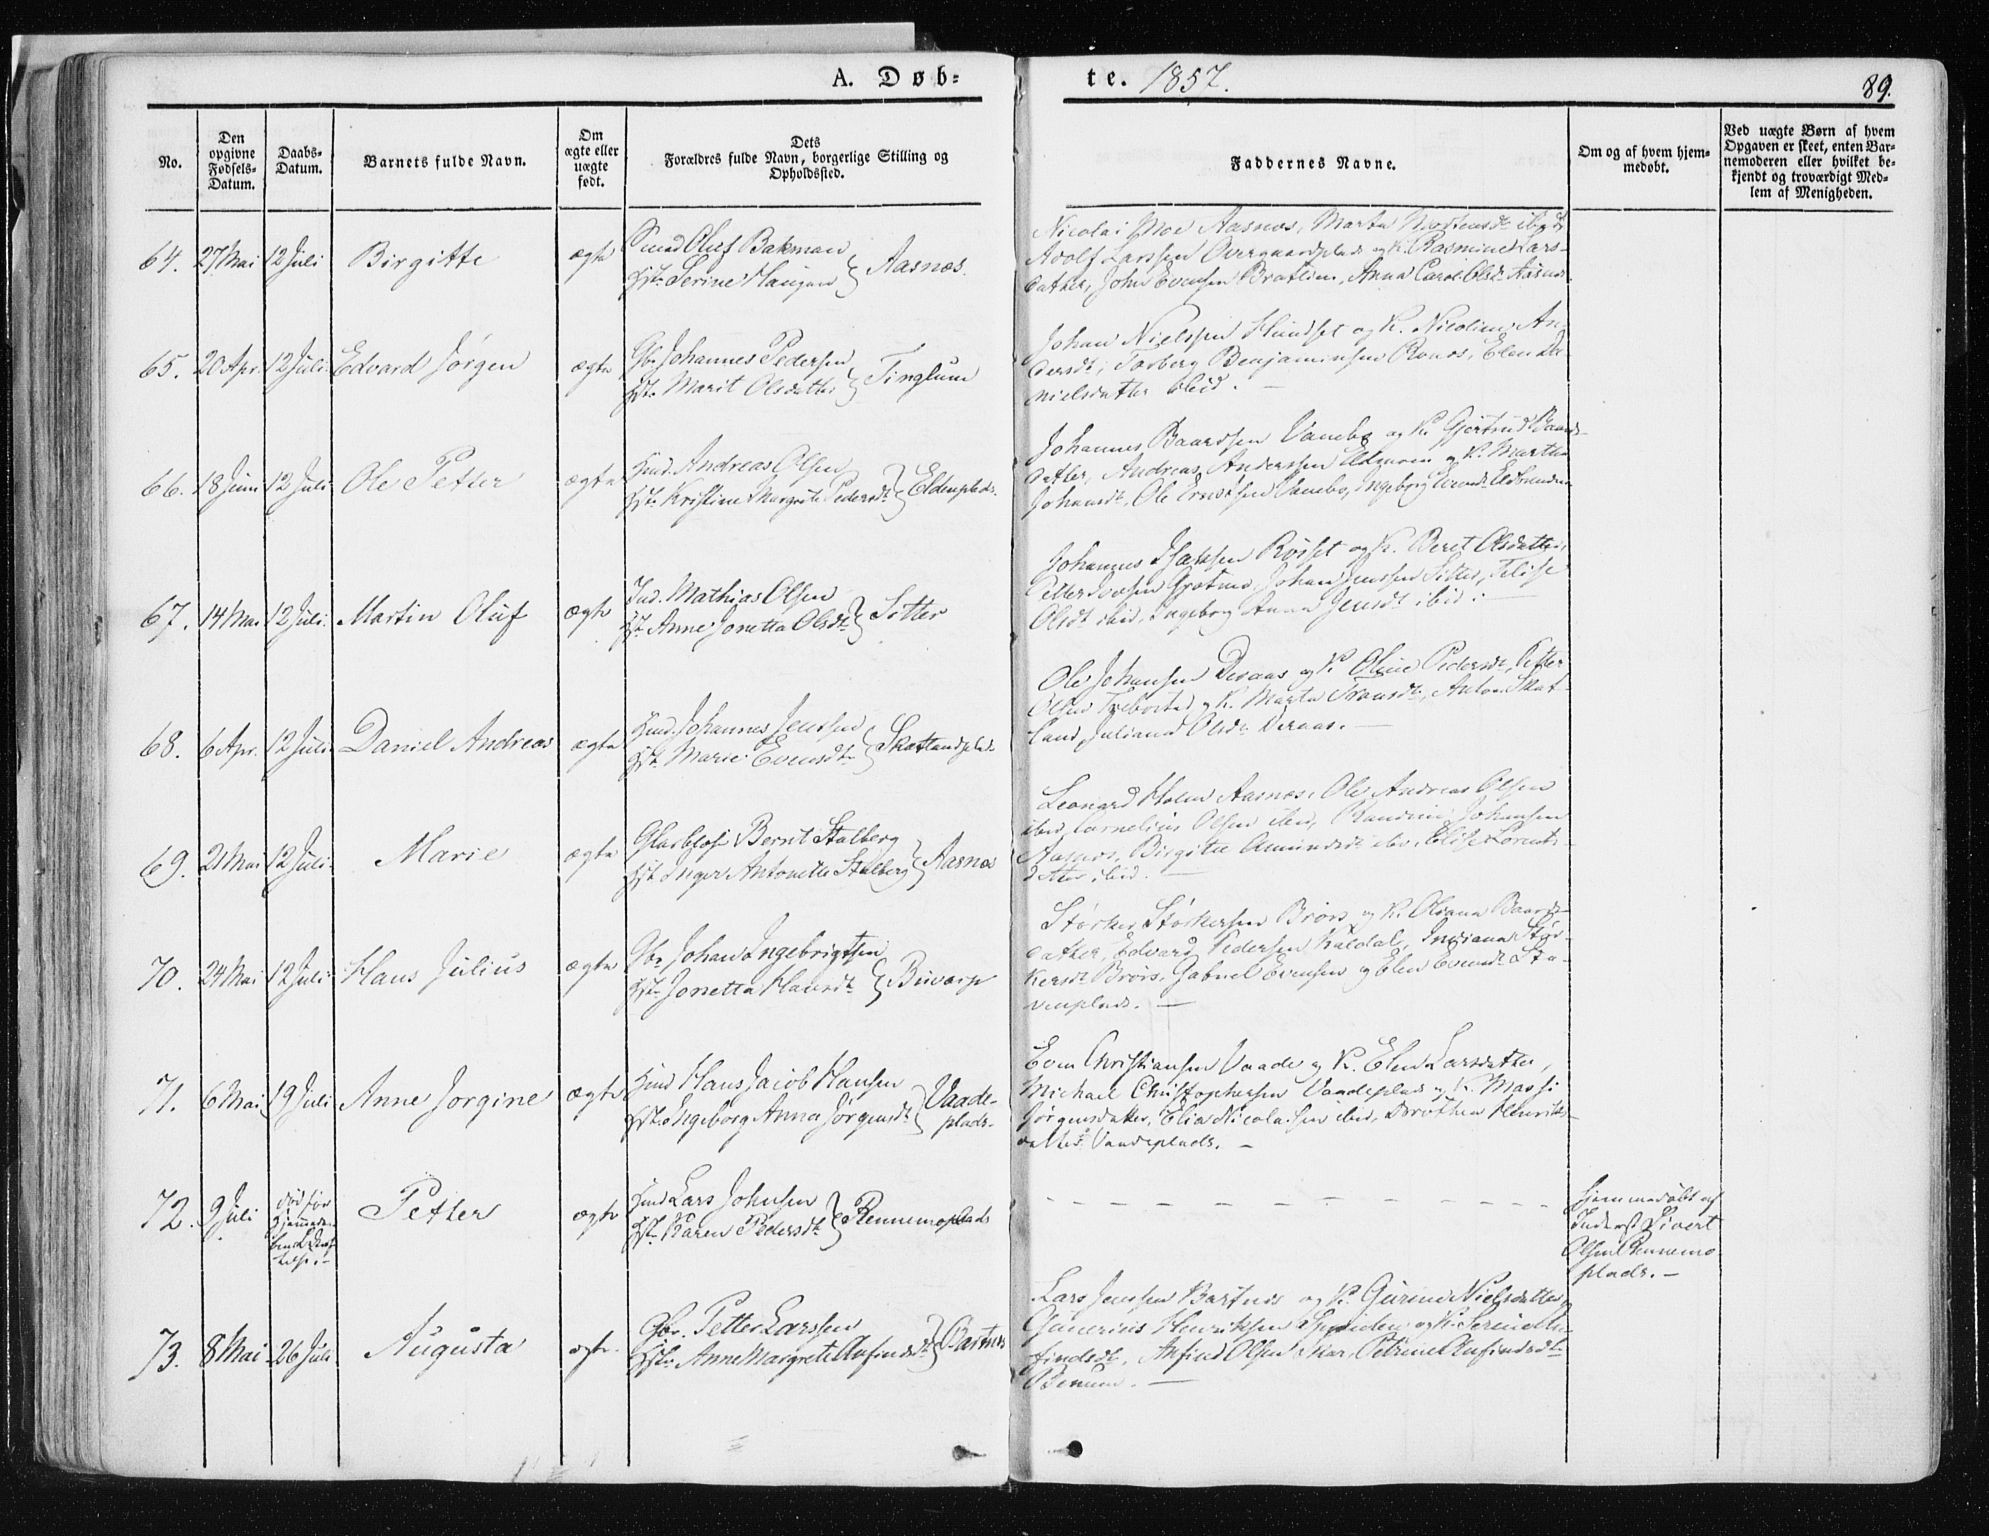 A. Døb= te. 1857. 89.
No.
Den opgivne Fødsels-Datum.
Daabs-Datum.
Barnets fulde Navn.
Om ægte eller uægte født.
Dets Forældres fulde Navn, borgerlige Stilling og Opholdssted.
Faddernes Navne.
Om og af hvem hjemmedøbt.
Ved uægte Børn af hvem
Opgaven er skeet, enten Bar-
nemoderen eller hvilket be-
kjendt og troværdigt Med-
lem af Menigheden.
64. 27 Mai 12 Juli Birgitte ægte
Smed Oluf Bakman
Hst. Serine Haugan } Aasnæs.
Nicolai Moe Aasnæs, Marta Mortensdt ibid
Adolf Larssen Overgaardsplads og K. Rasmine Lars-
datter, John Evensen Bratlien, Anna Carol. Olsdt Aasnæs.
65. 20 Apr. 12 Juli Edvard Jørgen ægte
Gbr Johannes Pedersen
Hst. Marit Olsdatter } Tinglum
Johan Nielssen Hundset og K. Nicoline An-
dersdt, Torberg Benjaminsen, Elen Da-
nielsdatter ibid. —
66. 18 Juni 12 Juli Ole Petter ægte
Hmd. Andreas Olsen
Hst. Kristine Margrete Pedersdt } Eldenplads.
Johannes Baardsen Vanebo og K. Gjertrud Baards-
datter, Andreas Anderssen og K. Martha
Johansdt, Ole Vanebo, Ingeborg
67. 14 Mai 12 Juli Martin Oluf ægte
Ind. Mathias Olsen
Hst. Anne Jonetta Olsdt } Sitter
Johannes Isaksen Røsset og K. Beret Olsdatter,
Petter, Johan Jenssen Sitter,
Olsdt ibid, Ingeborg Anna Jensdt ibid. —
68. 6 Apr. 12 Juli Daniel Andreas ægte
Hmd. Johannes Jenssen
Hst. Marie Evensdt } Skatlandsplads
Ole Johansen Deraas og K. Oline Pedersdt, Petter
Olsen og K. Marta, Anton Skat-
land, Juliana Olsdt Deraas. —
69. 21 Mai 12 Juli Marie ægte
Bernt Stalberg
Hst. Inger Antonette Stalberg } Aasnæs
Leonard Holm Aasnæs, Ole Andreas Olsen
ibid, Cornelius Olsen ibid, Johansen
Aasnæs, Birgitte Amundsdt ibid, Elise Lorents-
datter ibid. —
70. 24 Mai 12 Juli Hans Julius ægte
Gbr Johan Ingebrigtsen
Hst. Jonetta Hansdt } Buvarp
Størker Størkersen Brørs og K. Oliana Baards-
datter, Edvard Pedersen Kaldal, Indiana Stør-
kersdt Brørs, Gabriel Evensen og Elen Evensdt Sta-
venplads. —
71. 6 Mai 19 Juli Anne Jørgine ægte
Hmd Hans Jacob Hansen
Hst. Ingeborg Anna Jørgensdt } Vaade-
plads.
Even Christiansen Vaade og K. Elen Larsdatter,
Michael Christophersen Vaadeplads og K. Massi
Jørgensdatter, Elias Nicolaisen ibid, Dorothea Henriks-
datter Vaadeplads. —
72. 9 Juli
død før
hjemmeda-
bens Stad-
Petter ægte
Hmd Lars Johnsen
Hst. Karen Pedersdt } Rennemsplads
Hjemmedøbt af
Inderst Sivert
Olsen Rennems-
plads. —
73. 8 Mai 26 Juli Augusta ægte
Gbr. Petter Larssen
Hst. Anne Margrete Anfindsdt } Bartnæs
Lars Jenssen Bartnæs og K. Gurine Nielsdatter,
Henriksen og K. Serine An-
findsdt, Anfind Olsen, Petrine Anfindsdt